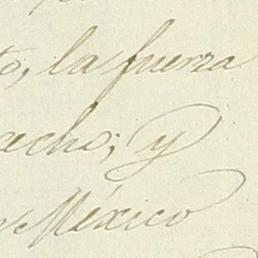 to, la fuerza
echo; y
México